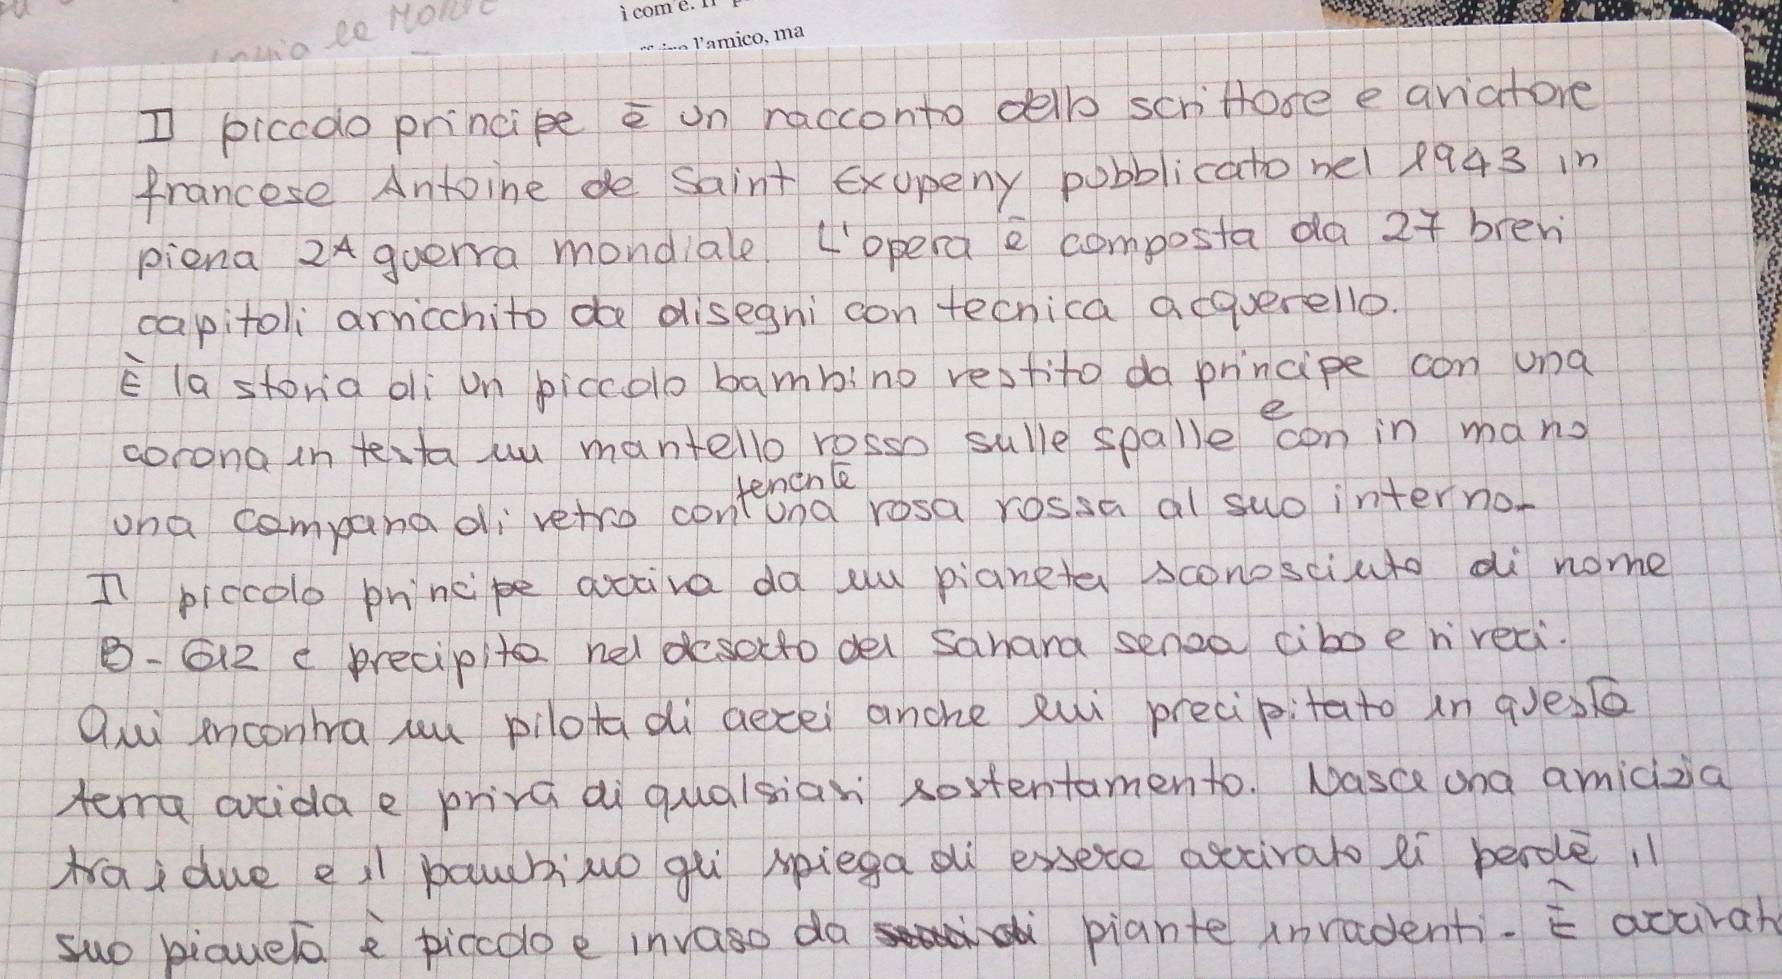 ì com'è. Il
l'amico, ma
Il piccolo principe è un racconto dello scrittore e aviatore
francese Antoine de Saint Exupeny pubblicato nel 1943 in
piena 2A guerra mondiale. L'opera è composta da 27 brevi
capitoli arricchito da disegni con tecnica acquerello.
È la storia di un piccolo bambino vestito da principe con una
corona in testa un mantello rosso sulle spalle e con in mano
una campana di vetro contenente una rosa rossa al suo interno.
Il piccolo principe arriva da un pianeta sconosciuto di nome
B-612 e precipita nel deserto del Sahara senza cibo e viveri.
Qui incontra un pilota di aerei anche lui precipitato in questa
terra arida e priva di qualsiasi sostentamento. Nasce una amicizia
tra i due e il bambino gli spiega di essere arrivato lì perchè il
suo pianeta è piccolo e invaso da piante invadenti. È arrivato